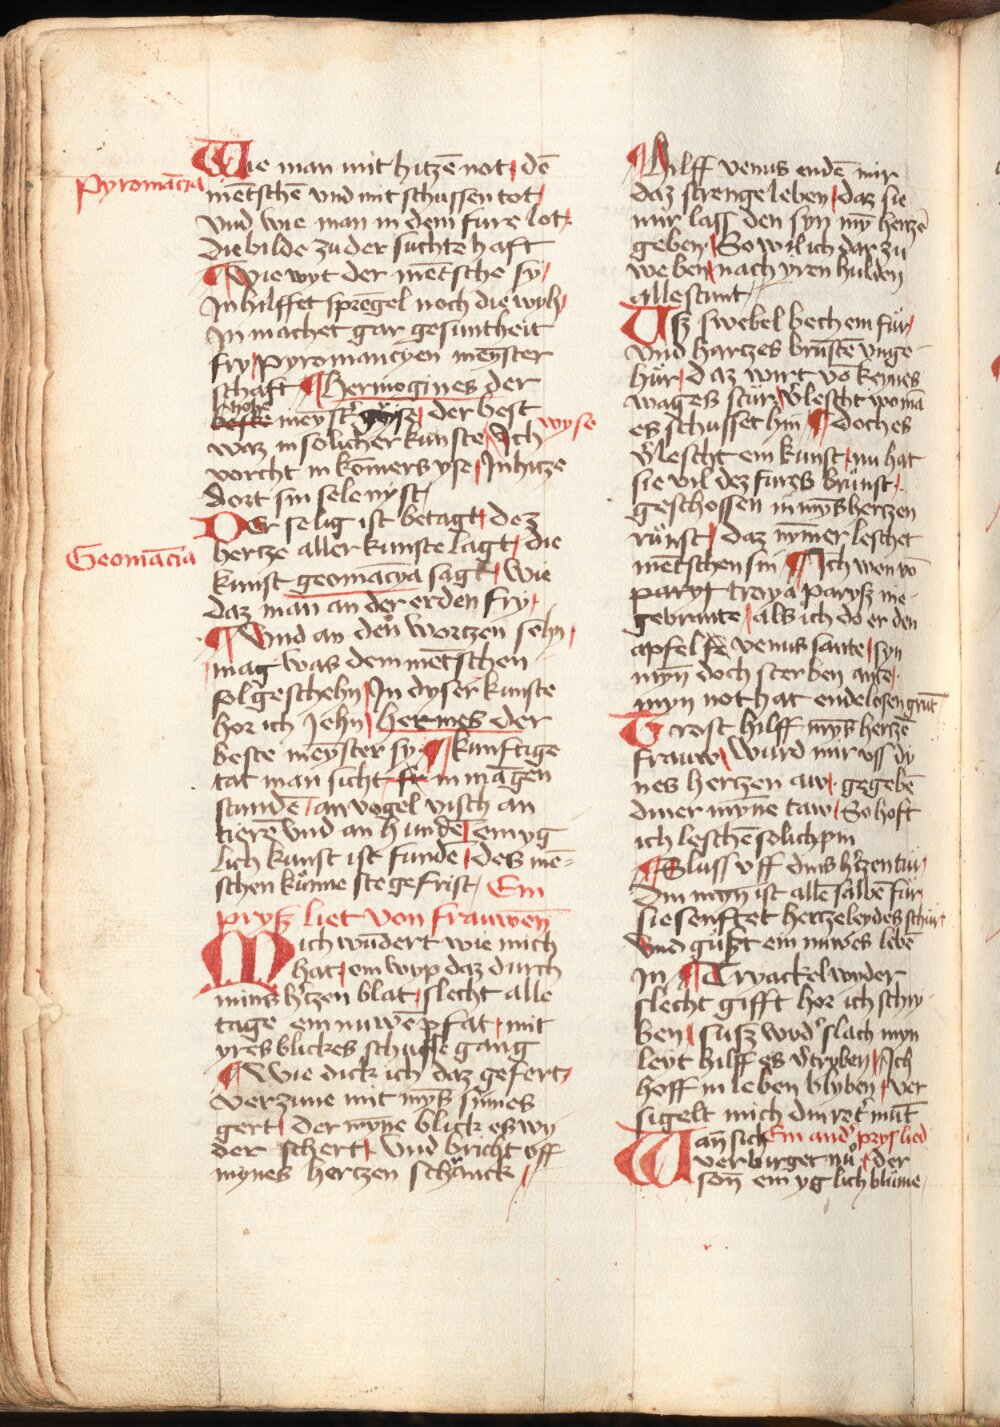 Pyromācia
Wie man mit hitzē not dē
mētschē vnd mit schussen tot
vnd wie man in dem fure lot
die bilde zu der suchte hafft
¶ Wie wyt der mētsche sy
Jn hilffet spregel noch die wyh
Jn machet gar gesuntheit
fry pyromancyen meyster
schaft ¶ Hermogines der
hohe
beste meystr̄ der best wyse
waz in solicher kunste Jch
vorcht in kōmers yse Jn hitze
dort sin sele nyst
Geomācia
Der selig ist betagt dez
hertze aller kunste lagt die
kunst geomācya sagt wie
daz man an der erden fry
¶ Vnd an den wortzen sehn
mag was dem mētschen
sol geschehn Jn dyser kunste
hor ich Jehn hermes der
beste meyster sy ¶ kunftige
tat man sicht in māgen
stunde an vogel visch an
tierē vnd an hundē em yg
lich kunst ist fundē des mē-
schen kūnne ste gefrist Ein
pryß liet von frauwēn
Mich wūdert wie mich
hat ein wyp daz durch
mins h'tzen blat slecht alle
tage ein nuwē pfat mit
yres blickes schusse gang
¶ Wie dick ich daz gefert
verzune mit myß sinnes
gert der mȳne blick es wy
der schert vnd bricht vff
mynes hertzen schranck
¶ Hilff venus endē mir
daz strenge leben daz sie
mir lass den syn mȳ hertzē
geben So wil ich dar zu
weben nach yren hulden
alle stunt
Vß swebel bech ein für
vnd hartzes brūstē vnge-
hür daz wirt vō keynes
wages stür v'lescht wo mā
es schusset hin ¶ doch es
v'lescht ein kunst nu hat
sie vil dez furs brunst
geschossen in myß hertzen
runst daz nȳmer leschet
mētschen sin ¶ Jch won vō
parys troya parysz nie
gebrante als ich do er den
apfel venus sante syn
mȳn doch sterben ante
myn not hat endelosen grūt
Trost hilff myß hertzē
frauw wurd mir vff dy
nes hertzen aw gegebē
diner mȳne taw So hoft
ich leschē solich pin
¶ Sluss vff dins h'tzen tür
din mȳn ist allē salbē für
sie senftet hertzeleydes schür
Vnd güßt ein nuwes lebē
Jn ¶ Tryackel wyder
slecht gifft hor ich schry-
ben susz wyd' slach myn
leyt hilff es v'tryben Jch
hoff in leben blyben ver
sigelt mich din rot' mūt
Ein and' prys lied
Wan sich
verbirget nū der
son ein yglich blüme